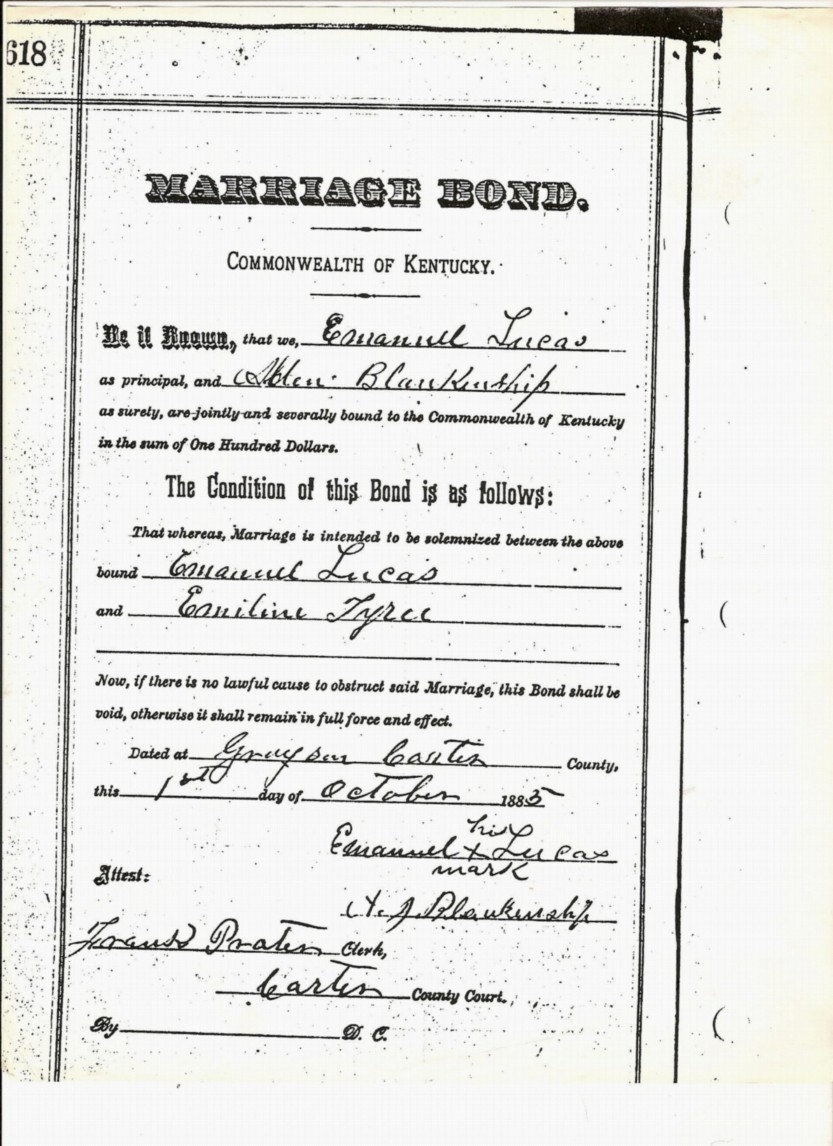 618
MARRIAGE BOND.
COMMONWEALTH OF KENTUCKY.
Be it Known, that we, Emanuel Lucas
as principal, and Blankenship
as surety, are jointly and severally bound to the Commonwealth of Kentucky
in the sum of One Hundred Dollars.
The Condition of this Bond is as follows:
That whereas, Marriage is intended to be solemnized between the above
bound Emanuel Lucas
and Emiline Tyree
Now, if there is no lawful cause to obstruct said Marriage, this Bond shall be
void, otherwise it shall remain in full force and effect.
Dated at Grayson Carter County,
this 1st day of October 1885
his
Emanuel x Lucas
mark
Attest:
J. Blankenship
Prater Clerk,
Carter County Court.
By D. C.